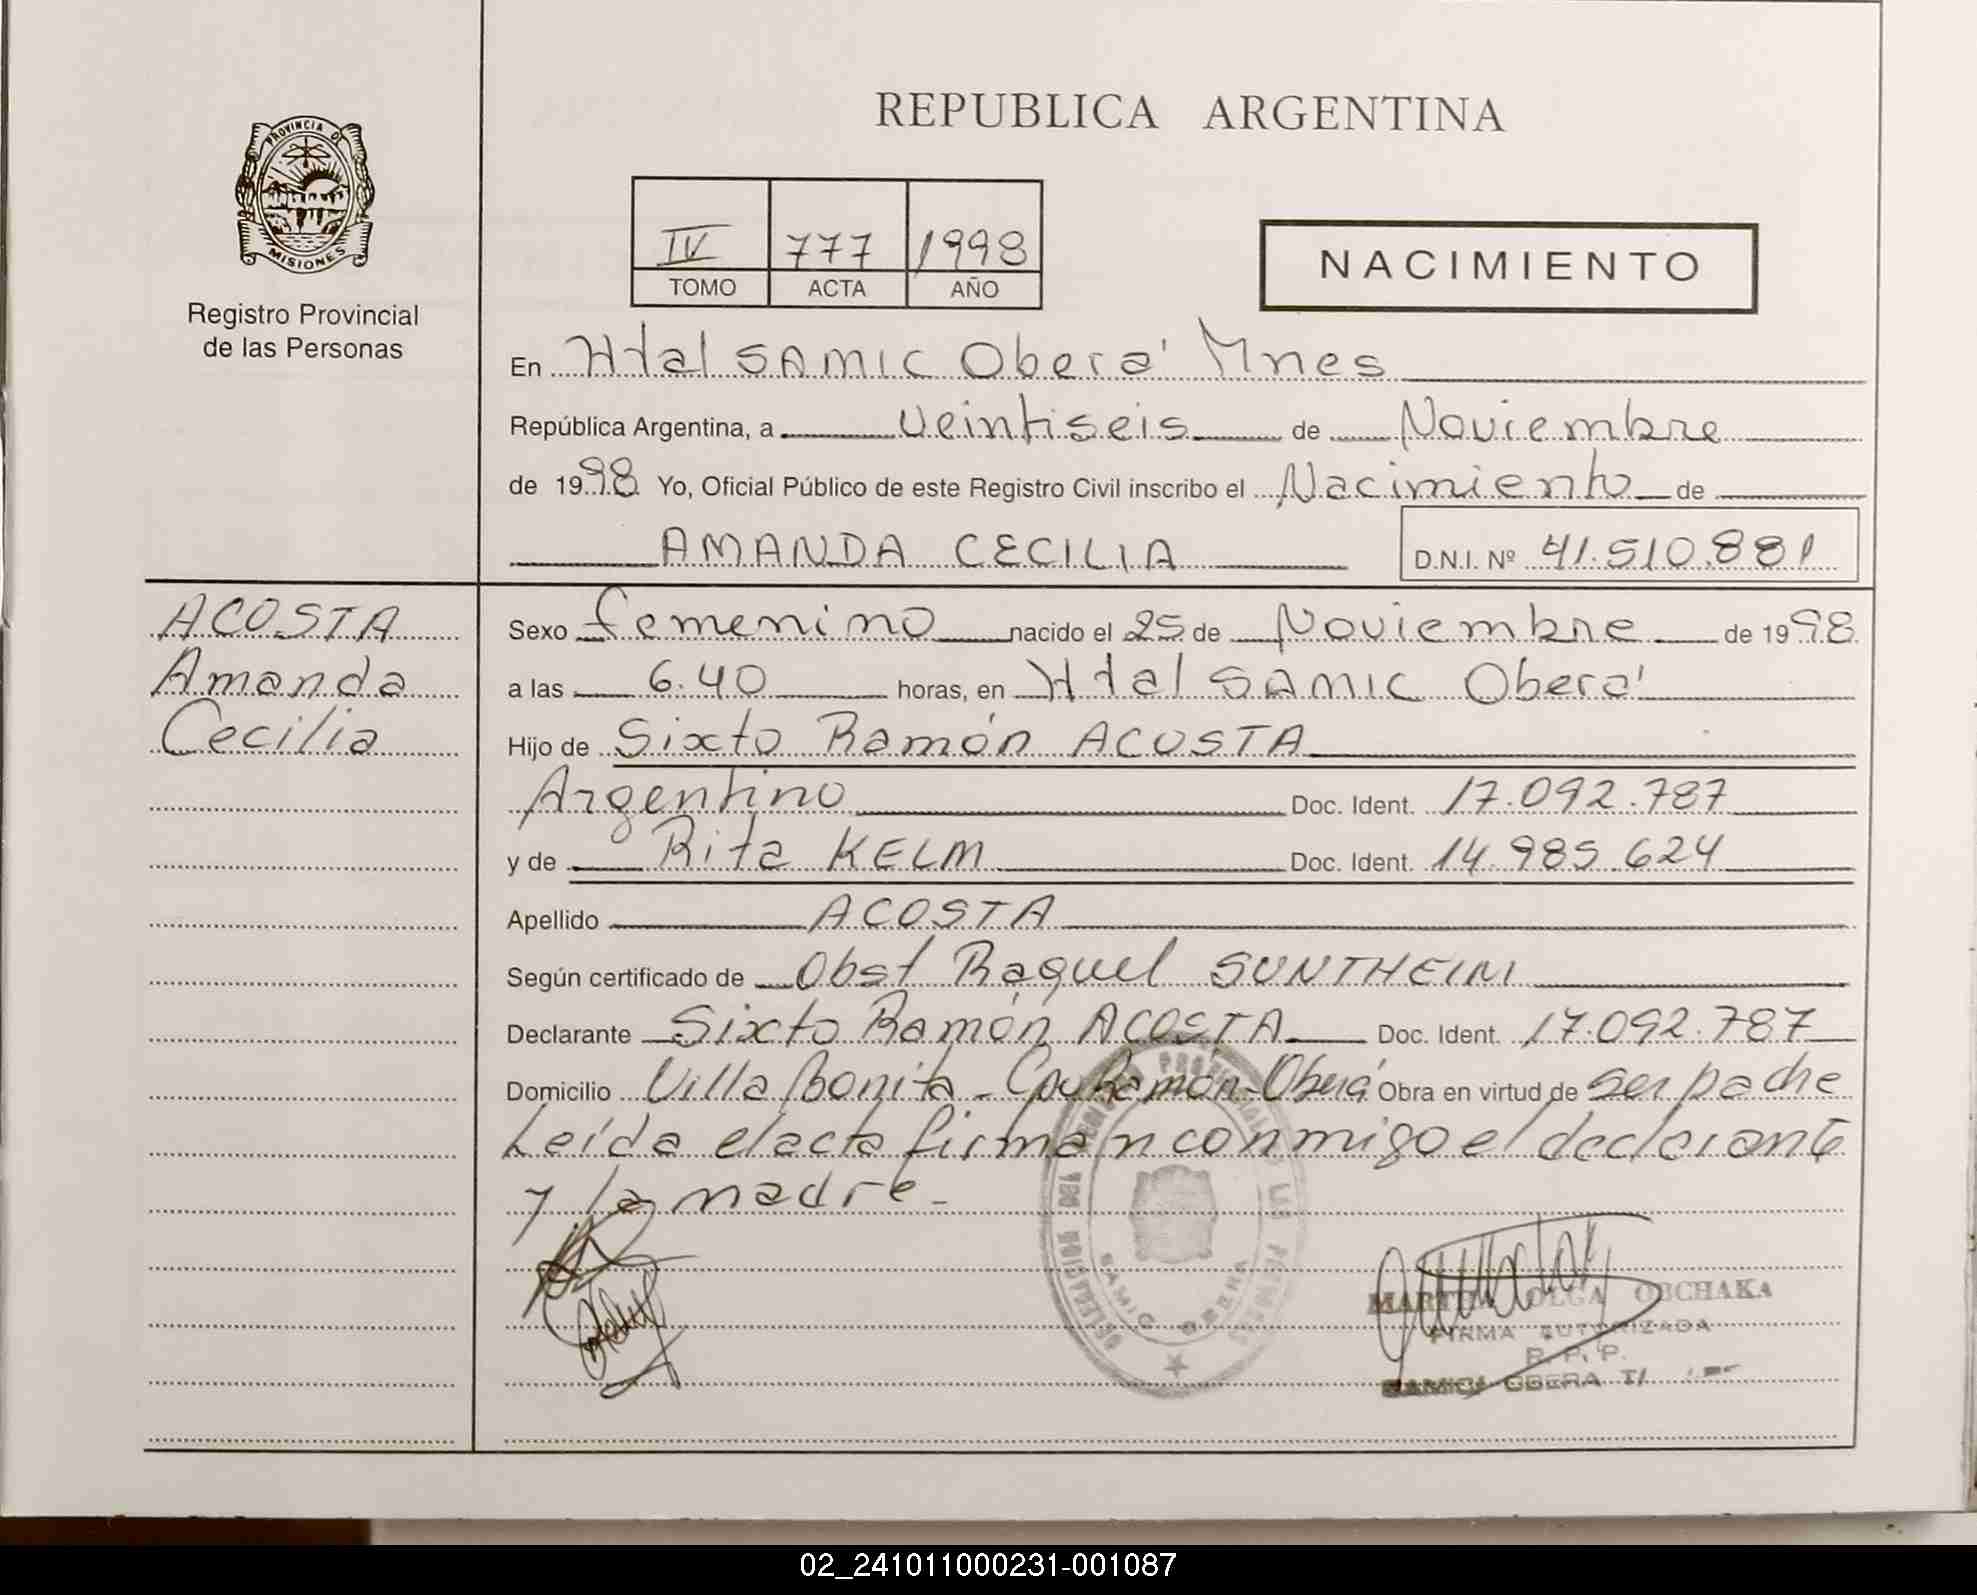 REPUBLICA ARGENTINA
PROVINCIA DE
MISIONES
Registro Provincial
de las Personas
IV 777 1998
TOMO ACTA AÑO
NACIMIENTO
En Htal SAMIC Oberá Mnes
República Argentina, a veintiseis de Noviembre
de 1998 Yo, Oficial Público de este Registro Civil inscribo el Nacimiento de
AMANDA CECILIA D.N.I. Nº 41.510.881
ACOSTA
Amanda
Cecilia
Sexo femenino nacido el 25 de Noviembre de 1998
a las 6.40 horas, en Htal SAMIC Oberá
Hijo de Sixto Ramón ACOSTA
Argentino Doc. Ident. 17.092.787
y de Rita KELM Doc. Ident. 14.985.624
Apellido ACOSTA
Según certificado de Obst Raquel SUNTHEIM
Declarante Sixto Ramón ACOSTA Doc. Ident. 17.092.787
Domicilio Villa Bonita - Ramón - Oberá Obra en virtud de ser padre
Leída el acta firman conmigo el declarante
y la madre.
DELEGACION DEL REGISTRO PROVINCIAL DE LAS PERSONAS
SAMIC OBERA
OLGA OBCHAKA
FIRMA AUTORIZADA
R. P. P.
SAMIC OBERA
02_241011000231-001087